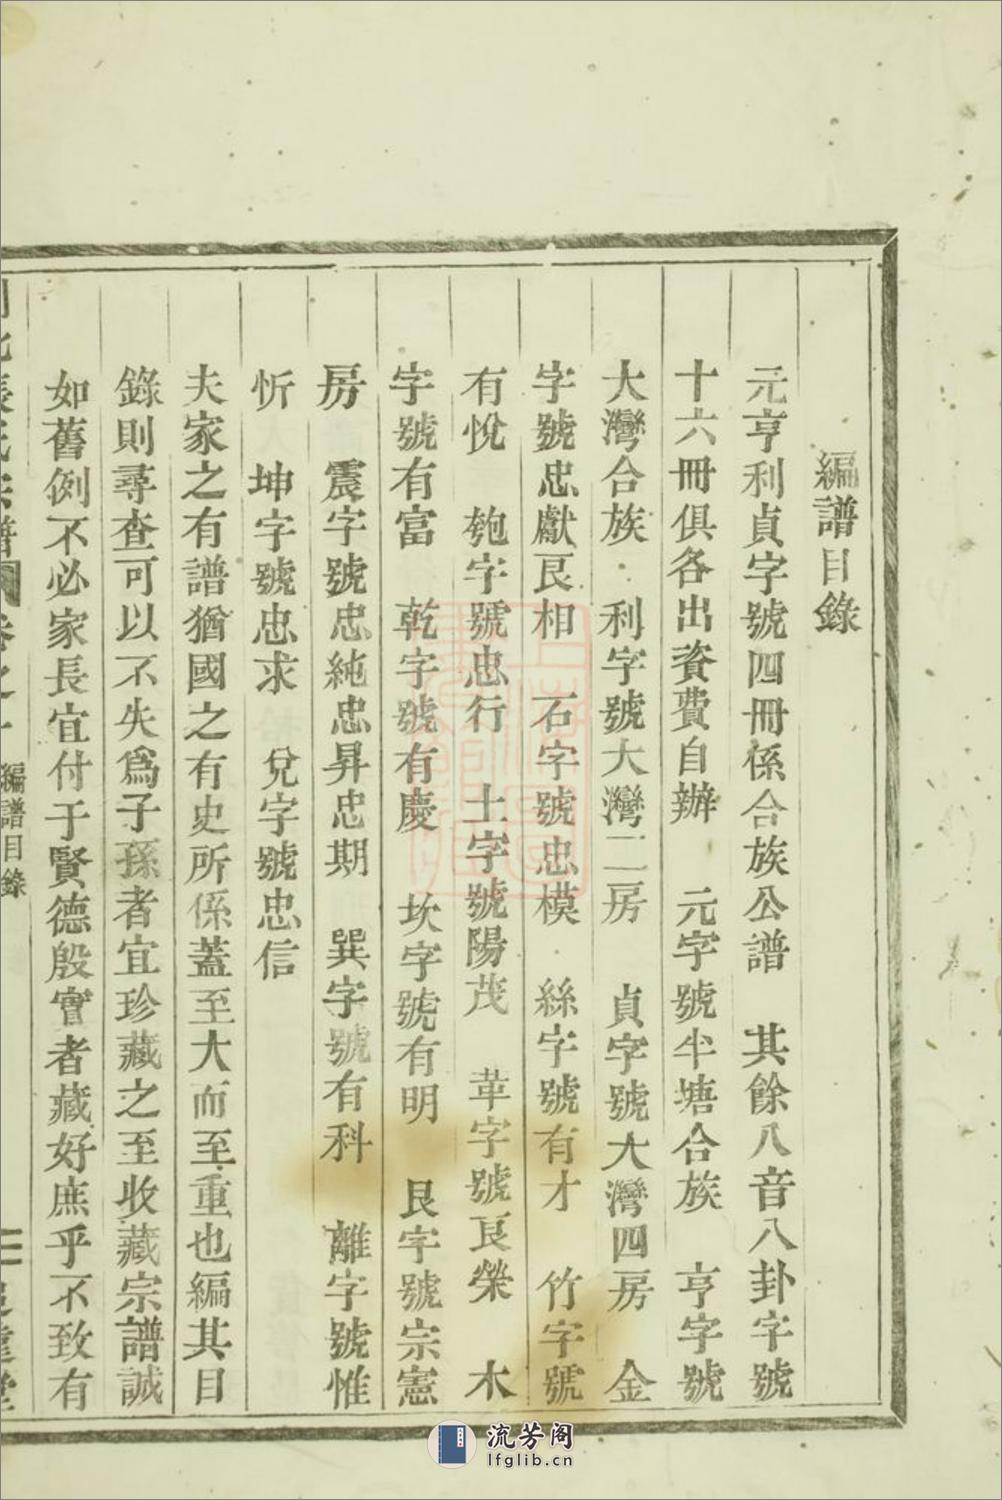 編譜目錄
元亨利貞字號四冊係合族公譜　其餘八音八卦字號
十六冊俱各出資費自辦　元字號半塘合族　亨字號
大灣合族　利字號大灣二房　貞字號大灣四房　金
字號忠獻良相　石字號忠模　絲字號有才　竹字號
有悅　匏字號忠行　土字號陽茂　革字號良榮　木
字號有富　乾字號有慶　坎字號有明　艮字號宗憲
房　震字號忠純忠昇忠期　巽字號有科　離字號惟
忻　坤字號忠求　兌字號忠信
夫家之有譜猶國之有史所係蓋至大而至重也編其目
錄則尋查可以不失為子孫者宜珍藏之至收藏宗譜誠
如舊例不必家長宜付于賢德殷實者藏好庶乎不致有
氏宗譜 卷之一 編譜目錄 二
流芳阁
lfglib.cn